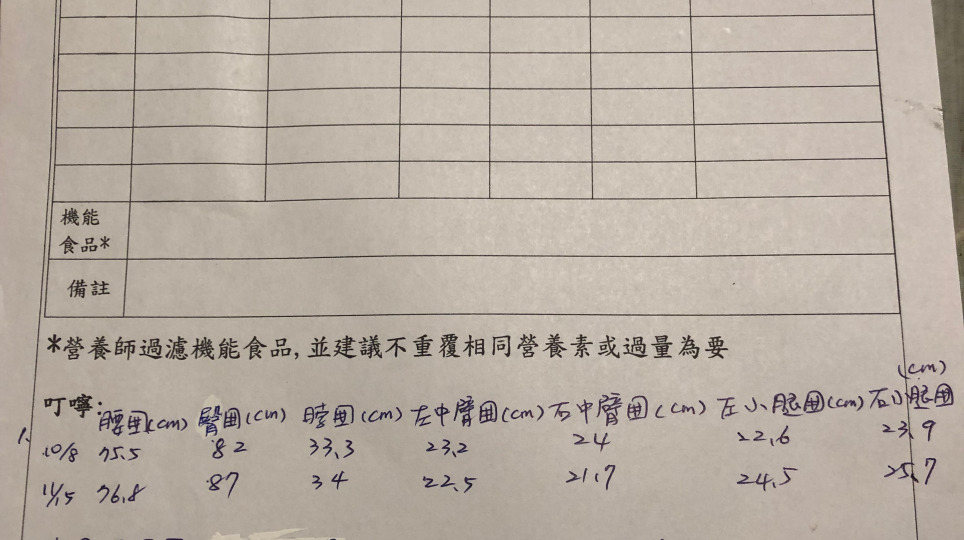 機能
食品*
備註
*營養師過濾機能食品,並建議不重覆相同營養素或過量為要
(cm)
叮嚀: 腰囲(cm) 臀囲(cm) 脖囲(cm) 左中臂囲(cm) 右中臂囲(cm) 左小腿囲(cm) 右小腿囲
1.
10/8 75.5 82 33.3 23.2 24 22.6 23.9
11/15 76.8 87 34 22.5 21.7 24.5 25.7